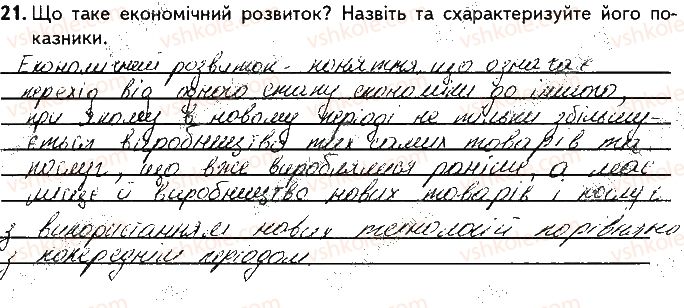 21. Що таке економічний розвиток? Назвіть та схарактеризуйте його по-
казники.
Економічний розвиток - поняття, що означає
перехід від одного стану економіки до іншого,
при якому в новому періоді не тільки збільшу-
ється виробництва тих самих товарів та
послуг, що вже вироблялися раніше, а має
місце й виробництво нових товарів і послуг
з використанням нових технологій порівняно
з попереднім періодом.